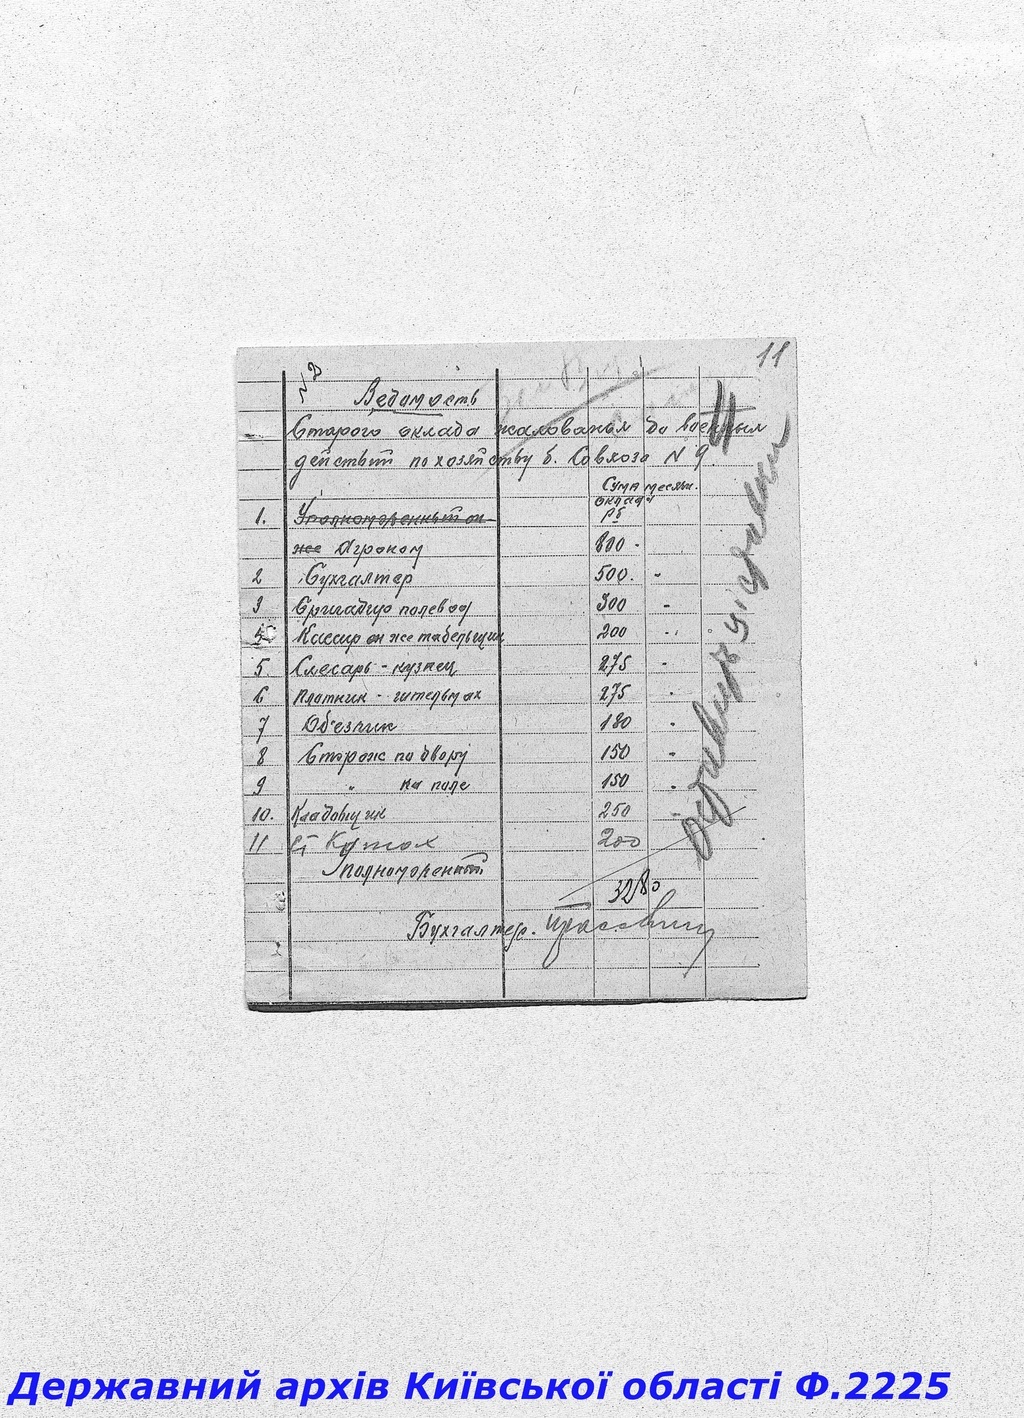 11
№2
Ведомость
Старого оклада жалования до военных
действий по хозяйству б. Совхоза N 9.
Сума месячн.
оклада
рб
1. Уполномоченный он
же Агроном 800 -
2 Бухгалтер 500. -
3 Бригадир полевод 300 -
4 Кассир он же табельщик 200 -
5. Слесарь - кузнец 275 -
6 Плотник - 275 -
7 Обезчик 180 -
8 Сторож по двору 150 -
9 " на поле 150 -
10. Кладовщик 250 -
11 200
Уполномоченный
3280
Бухгалтер.
Державний архів Київської області Ф.2225